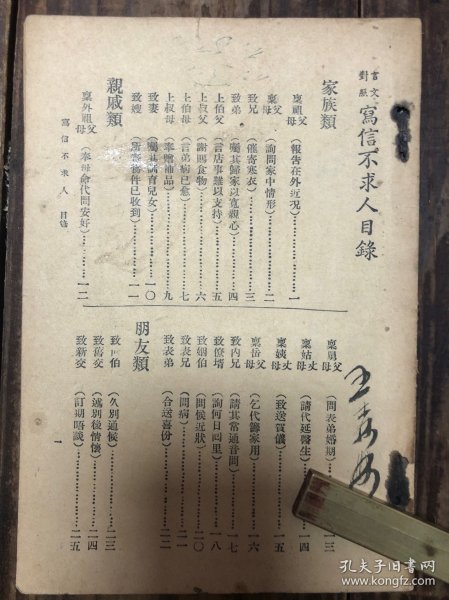 言文對照 寫信不求人目錄
家族類
稟祖父母（報告在外近況）…………一
稟父母（詢問家中情形）…………二
致兄（催寄寒衣）…………三
致弟（囑其歸家以寬親心）…………四
上伯父（言店事難以支持）…………五
上叔父（謝賜食物）…………六
上伯母（言弟病已愈）…………七
上叔母（奉贈補品）…………九
致妻（囑其撫育兒女）…………一〇
致嫂（所寄物件已收到）…………一一
親戚類
稟外祖父母（奉母命代問安好）…………一二
稟舅父母（問表弟婚期）…………
稟姑丈母（請代延醫生）…………一四
稟姨丈母（致送賀儀）…………一五
稟岳父母（乞代籌家用）…………一六
致內兄（請其常通音問）…………一七
致僚壻（詢何日回里）…………一八
致姻伯（問候近狀）…………二〇
致表兄（問病）…………二一
致表弟（合送喜份）…………二二
朋友類
致世伯（久別通候）…………二三
致舊交（述別後情懷）…………二四
致新交（訂期晤談）…………二五
寫信不求人 目錄
一
孔夫子旧书网